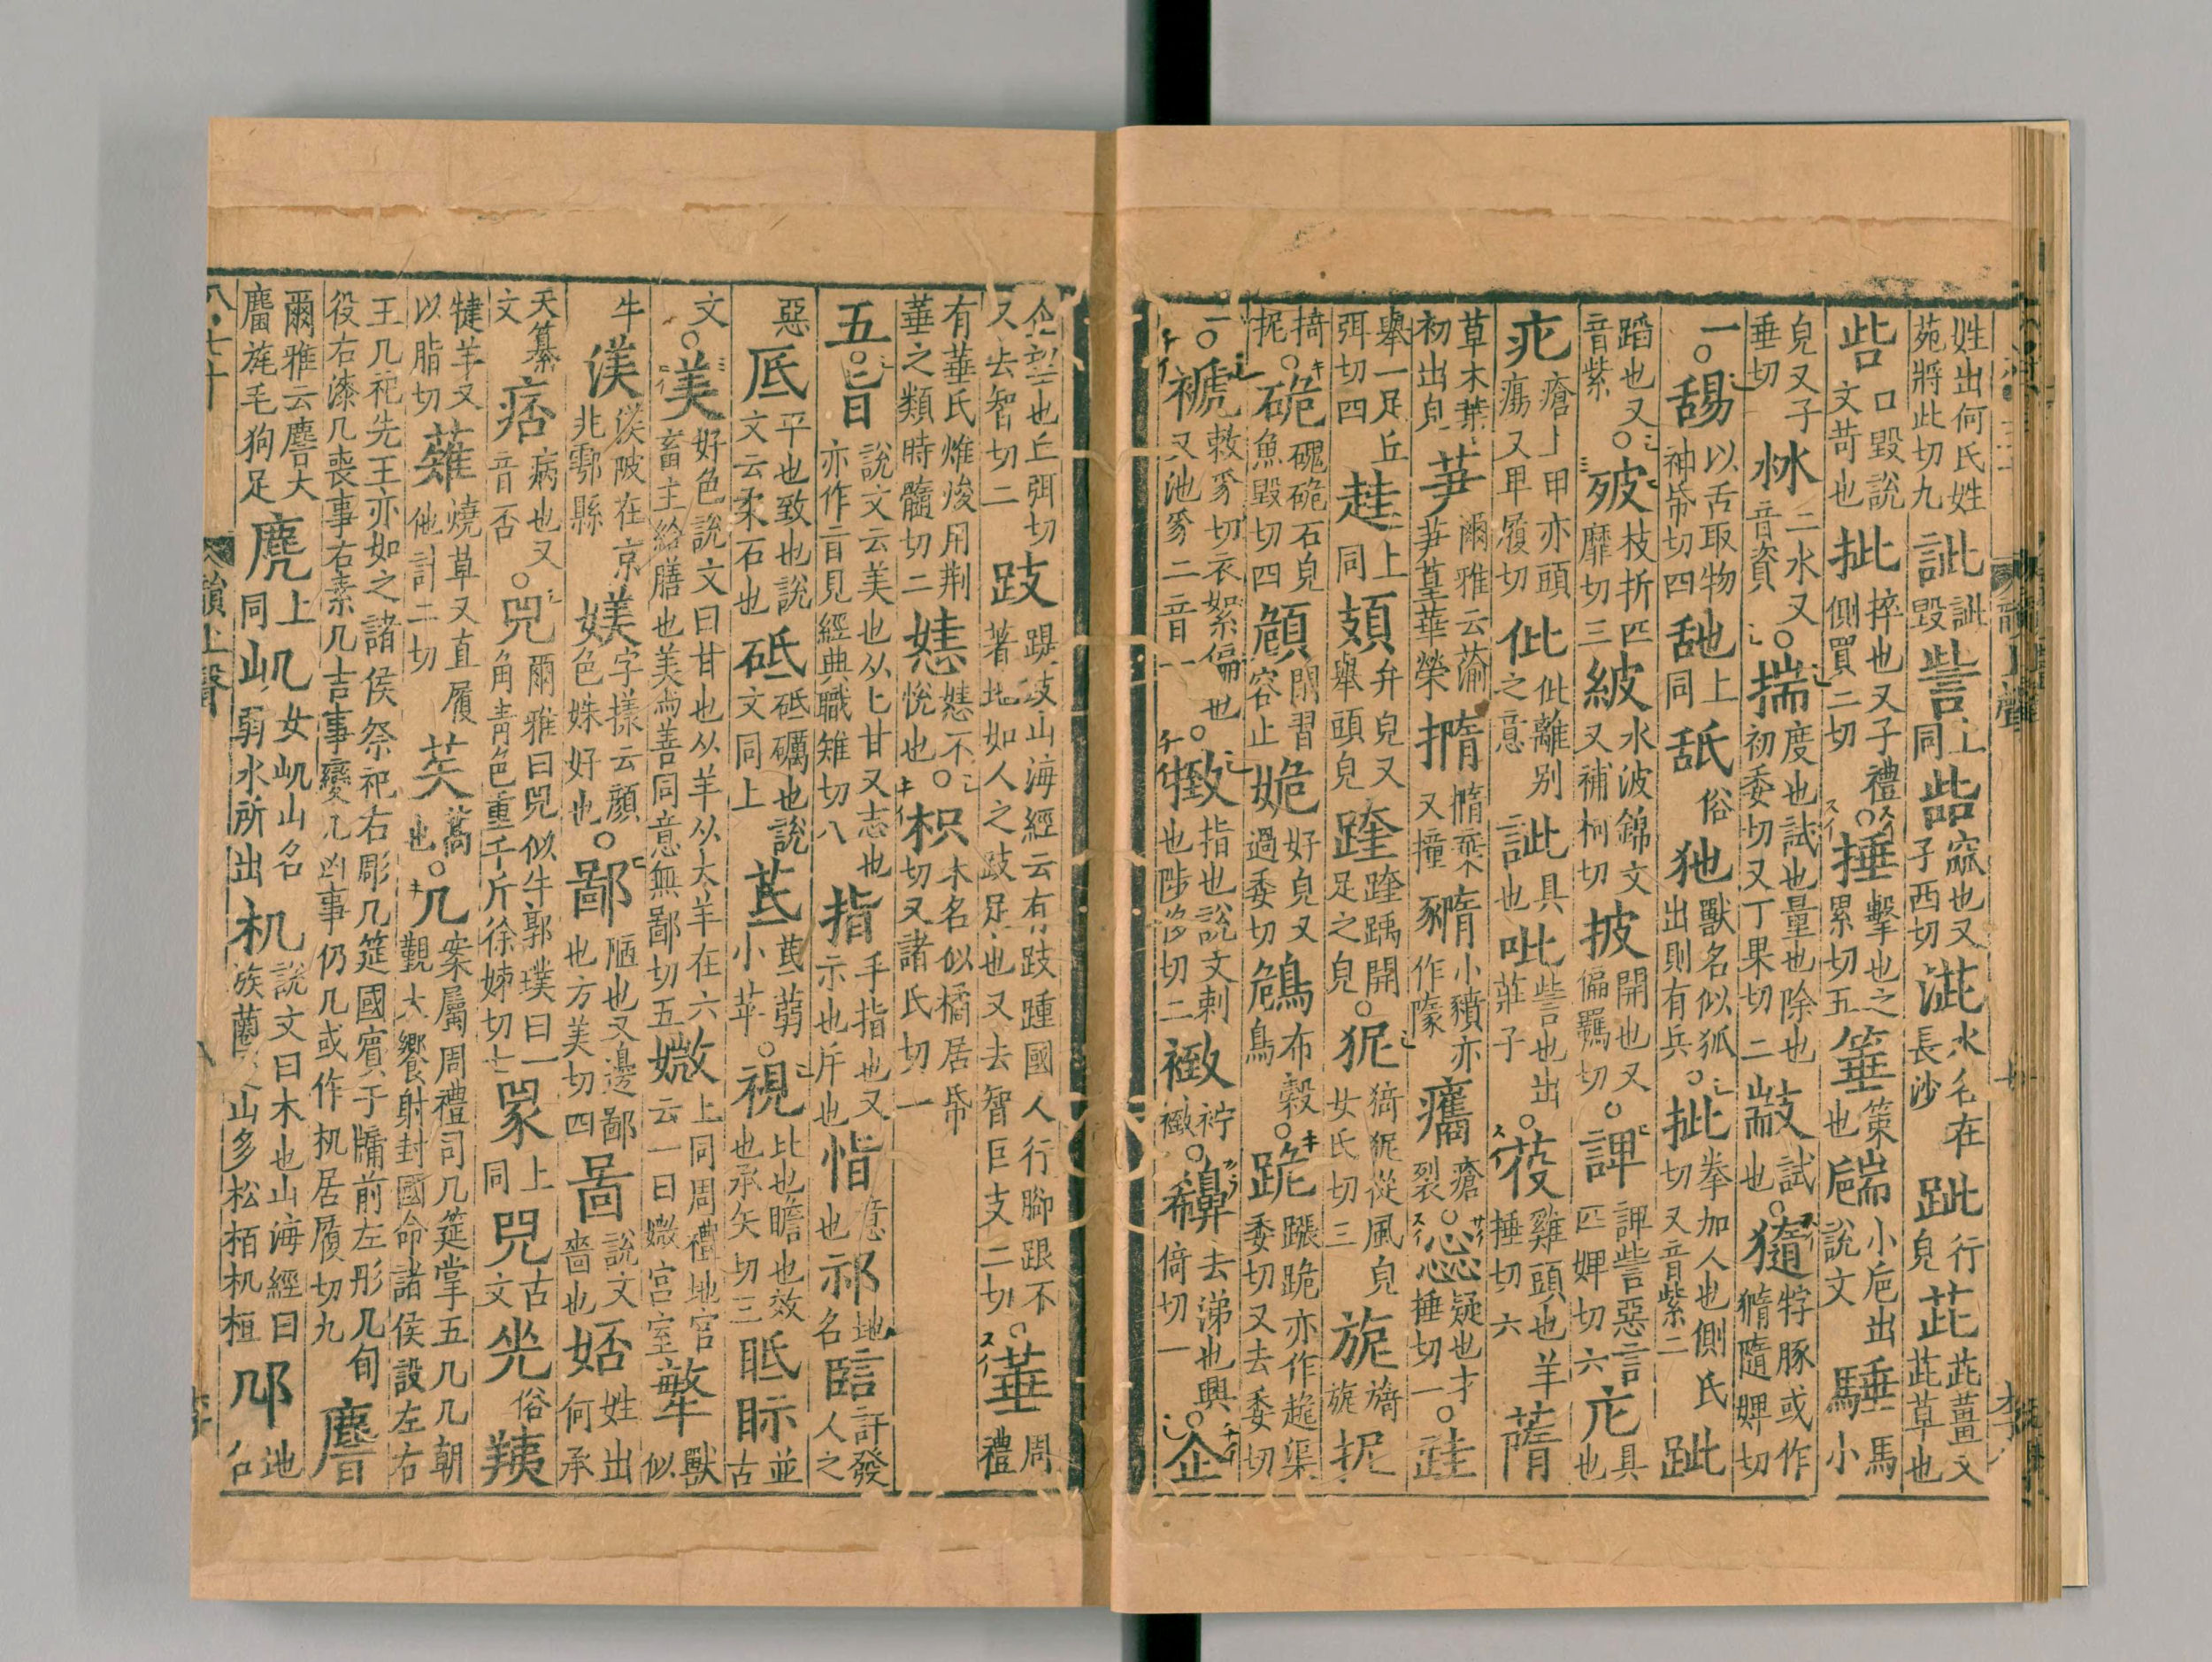 姓出何氏姓苑將此切九 訿 訿毀 訾 上同 啙 窳也又子西切 㴰 水名在長沙 跐 行皃 茈 茈薑又茈草也
呰 口毀說文苛也 批 捽也又子禮側買二切 ○捶 擊也之累切五 箠 策也 小巵出說文 馬小
皃又子垂切 沝 二水又音資 ○揣 度也試也量也除也初委切又丁果切二 㪜 試也 ○ 牸豚或作隨婢切
一○舓 以舌取物神帋切四 上同 舐 俗 狏 獸名似狐出則有兵 ○批 拳加人也側氏切又音紫二 跐
蹈也又音紫 ○ 枝折匹靡切三 紴 水波錦文又補柯切 披 開也又偏羈切 ○諀 諀訾惡言匹婢切六 庀 具也
疕 瘡上甲亦頭瘍又卑履切 仳 仳離別之意 訿 具也 吡 訾也出莊子 ○ 雞頭也羊捶切六
草木葉初出皃 芛 爾雅云蕍芛葟華榮 撱 棄又撞 小豶亦作 瘡裂 ○惢 疑也才捶切一 ○
舉一足丘弭切四 上同 頍 弁皃又舉頭皃 踽開足之皃 ○狔 猗狔從風皃女氏切三 旎 旖旎 抳
掎抳 ○硊 磈硊石皃魚毀切四 頠 閑習容止 姽 好皃又過委切 布穀鳥 ○跪 跪亦作渠委切又去委切
一○褫 敕豸切衣絮偏也又池豸二音一 ○ 指也說文刺也陟侈切二 緻 紵緻 ○ 去涕也興倚切一 ○企
企望也丘弭切又去智切二 跂 跂山海經云有跂踵國人行腳跟不著地如人之跂足也又去智巨支二切 ○ 周禮
有華氏燋焌用荆華之類時髓切二 㛃不悅也 ○枳 木名似橘居帋切又諸氏切一
五○旨 說文云美也从匕甘又志也亦作㫖見經典職雉切八 指 手指也又示也斥也 恉 意也 祁 地名 訐發人之
惡 厎 平也致也說文云柔石也 砥 砥礪也說文同上 茋 茋蒻小苹 ○視 比也瞻也效也承矢切三 眡 眎 並古
文○美 好色說文曰甘也从羊从大羊在六畜主給膳也美與善同意無鄙切五 媺 上同周禮地官云一曰媺宮室 獸似
牛 渼 渼陂在京兆鄠縣 媄 字樣云顏色姝好也 ○鄙 陋也又邊鄙也方美切四 啚 說文嗇也 娝 姓出何承
天纂文 痞 病也又音否 ○兕 爾雅曰兕似牛郭璞曰一角青色重千斤徐姊切七 上同 古文 俗 羠
犍羊又以脂切 薙 燒草又直履他計二切 葟也 ○几 案屬周禮司几筵掌五几几朝覲大饗射封國命諸侯設左右
王几祀先王亦如之諸侯祭祀右彫几筵國賓于牖前左彤几甸役右漆几喪事右素几吉事變几凶事仍几或作机居履切九 麔
爾雅云麔大麕旄毛狗足 麂 上同 屼 女屼山名弱水所出 机 說文曰木也山海經曰族蘁之山多松栢机桓 地名
韻上聲